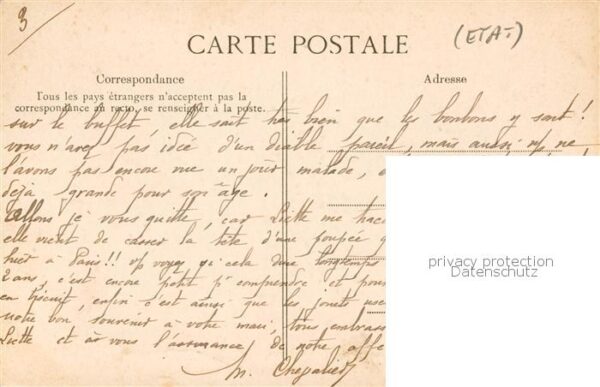 3
(ETAT)
CARTE POSTALE
Correspondance
Adresse
Tous les pays étrangers n'acceptent pas la
correspondance au recto, se renseigner à la poste.
sur le buffet, elle sait très bien que les bonbons y sont!
vous n'avez pas idée d'un diable pareil, mais aussi ns ne
l'avons pas encore vue un jour malade,
déjà grande pour son âge.
Allons je vous quitte, car Liette me
elle vient de casser la tête d'une poupée
hier à Paris!! vs voyez si cela dure longtemps
2 ans, c'est encore petit pr comprendre et pour
en biscuit, enfin c'est ainsi que les jouets
notre bon souvenir à votre mari, tous
Liette et à vous l'assurance de notre
M. Chevalier
privacy protection
Datenschutz